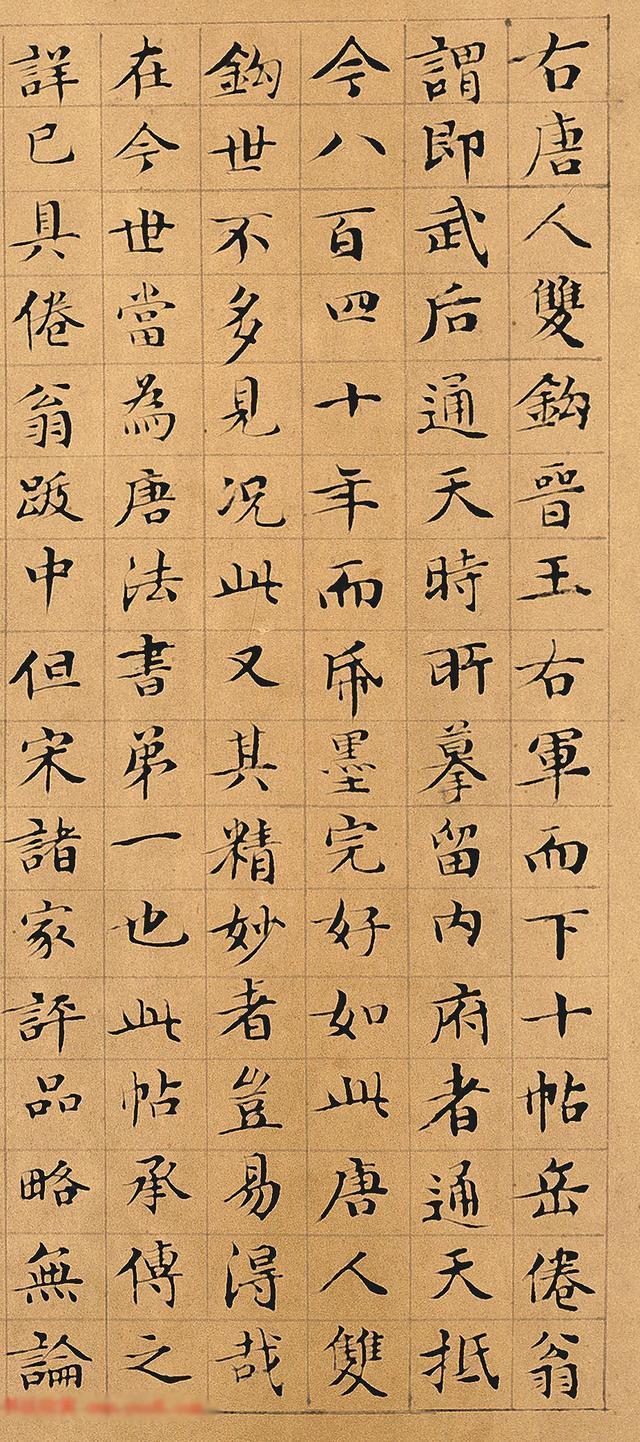 右唐人雙鈎晉王右軍而下十帖岳倦翁
謂即武后通天時所摹留內府者通天抵
今八百四十年而帋墨完好如此唐人雙
鈎世不多見况此又其精妙者豈易得哉
在今世當為唐法書第一也此帖承傳之
詳已具倦翁跋中但宋諸家評品略無論